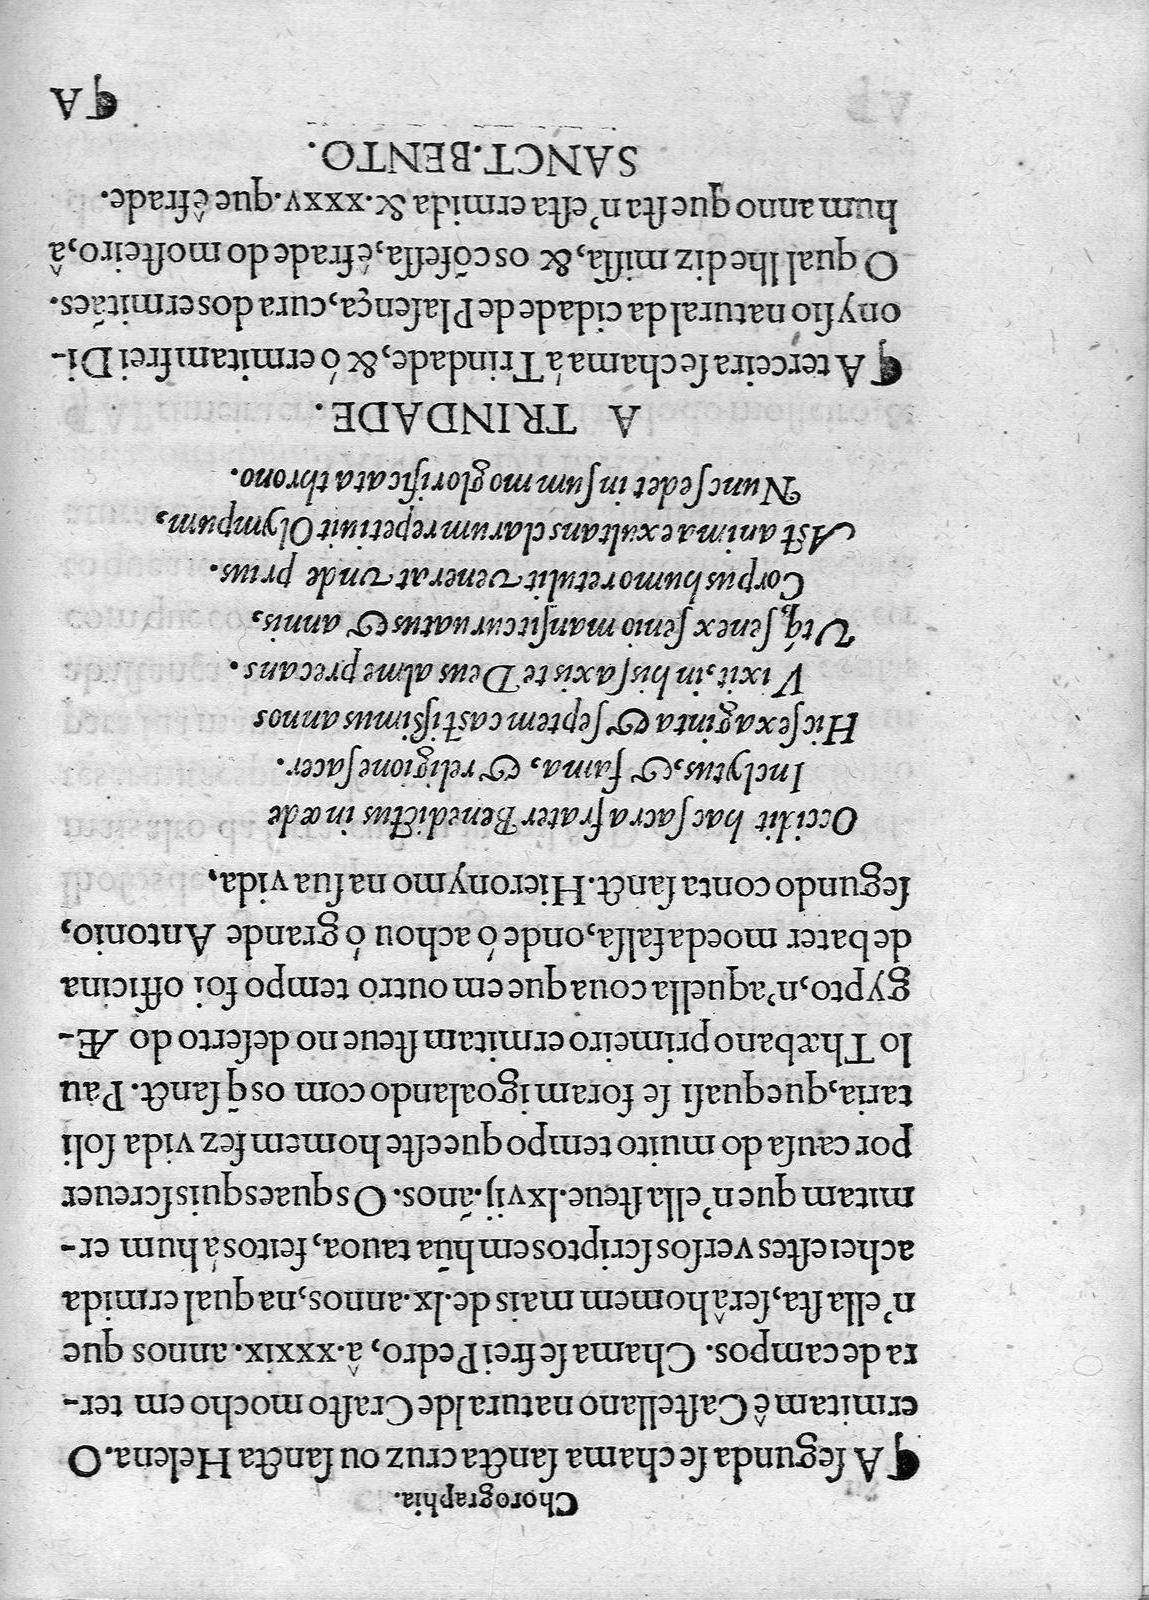 Chorographia.
¶ A ſegunda ſe chama ſancta cruz ou ſancta Helena. O
ermitam ê Caſtellano natural de Craſto mocho em ter-
ra de campos. Chama ſe frei Pedro, â. xxxix. annos que
n'ella ſta, ſerâ homem mais de. lx. annos, na qual ermida
achei eſtes verſos ſcriptos em hũa tauoa, feitos á hum er-
mitam que n'ella ſteue. lxvij. ános. Os quaes quis ſcreuer
por cauſa do muito tempo que eſte homem fez vida ſoli
taria, que quaſi ſe foram igoalando com os q̃ ſanct. Pau
lo Thæbano primeiro ermitam ſteue no deſerto do Æ-
gypto, n'aquella coua que em outro tempo foi officina
de bater moeda falſa, onde ó achou ó grande Antonio,
ſegundo conta ſanct. Hieronymo na ſua vida,
Occidit hac ſacra frater Benedictus in æde
Inclytus, & fama, & religione ſacer.
Hic ſexaginta & ſeptem castiſsimus annos
Vixit, in his ſaxis te Deus alme precans.
Vtq́; ſenex ſenio manſit curuatus & annis,
Corpus humo retulit venerat vnde prius.
Ast anima exultans clarum repetiuit Olympum,
Nunc ſedet in ſummo glorificata throno.
A TRINDADE.
¶ A terceira ſe chama á Trindade, & ó ermitam frei Di-
onyſio natural da cidade de Plaſença, cura dos ermitães.
O qual lhe diz miſſa, & os cõfeſſa, ê frade do moſteiro, â
hum anno que ſta n'eſta ermida &. xxxv. que ê frade.
SANCT. BENTO.
¶ A